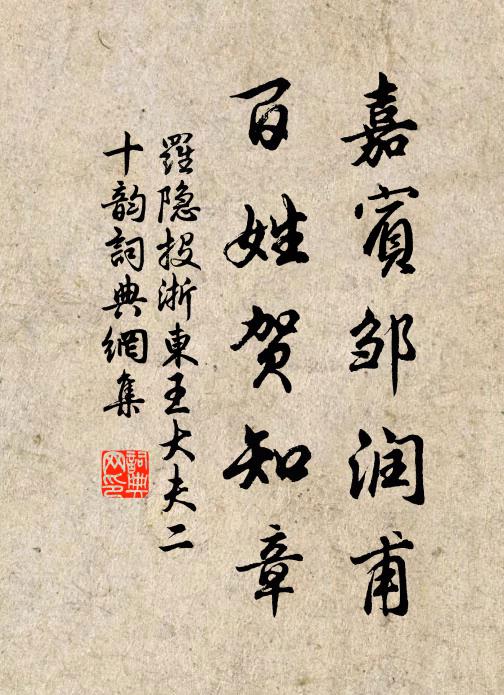 嘉賓邹润甫
百姓贺知章
羅隐投浙東王大夫二
十韵詞典網集
詞典網印